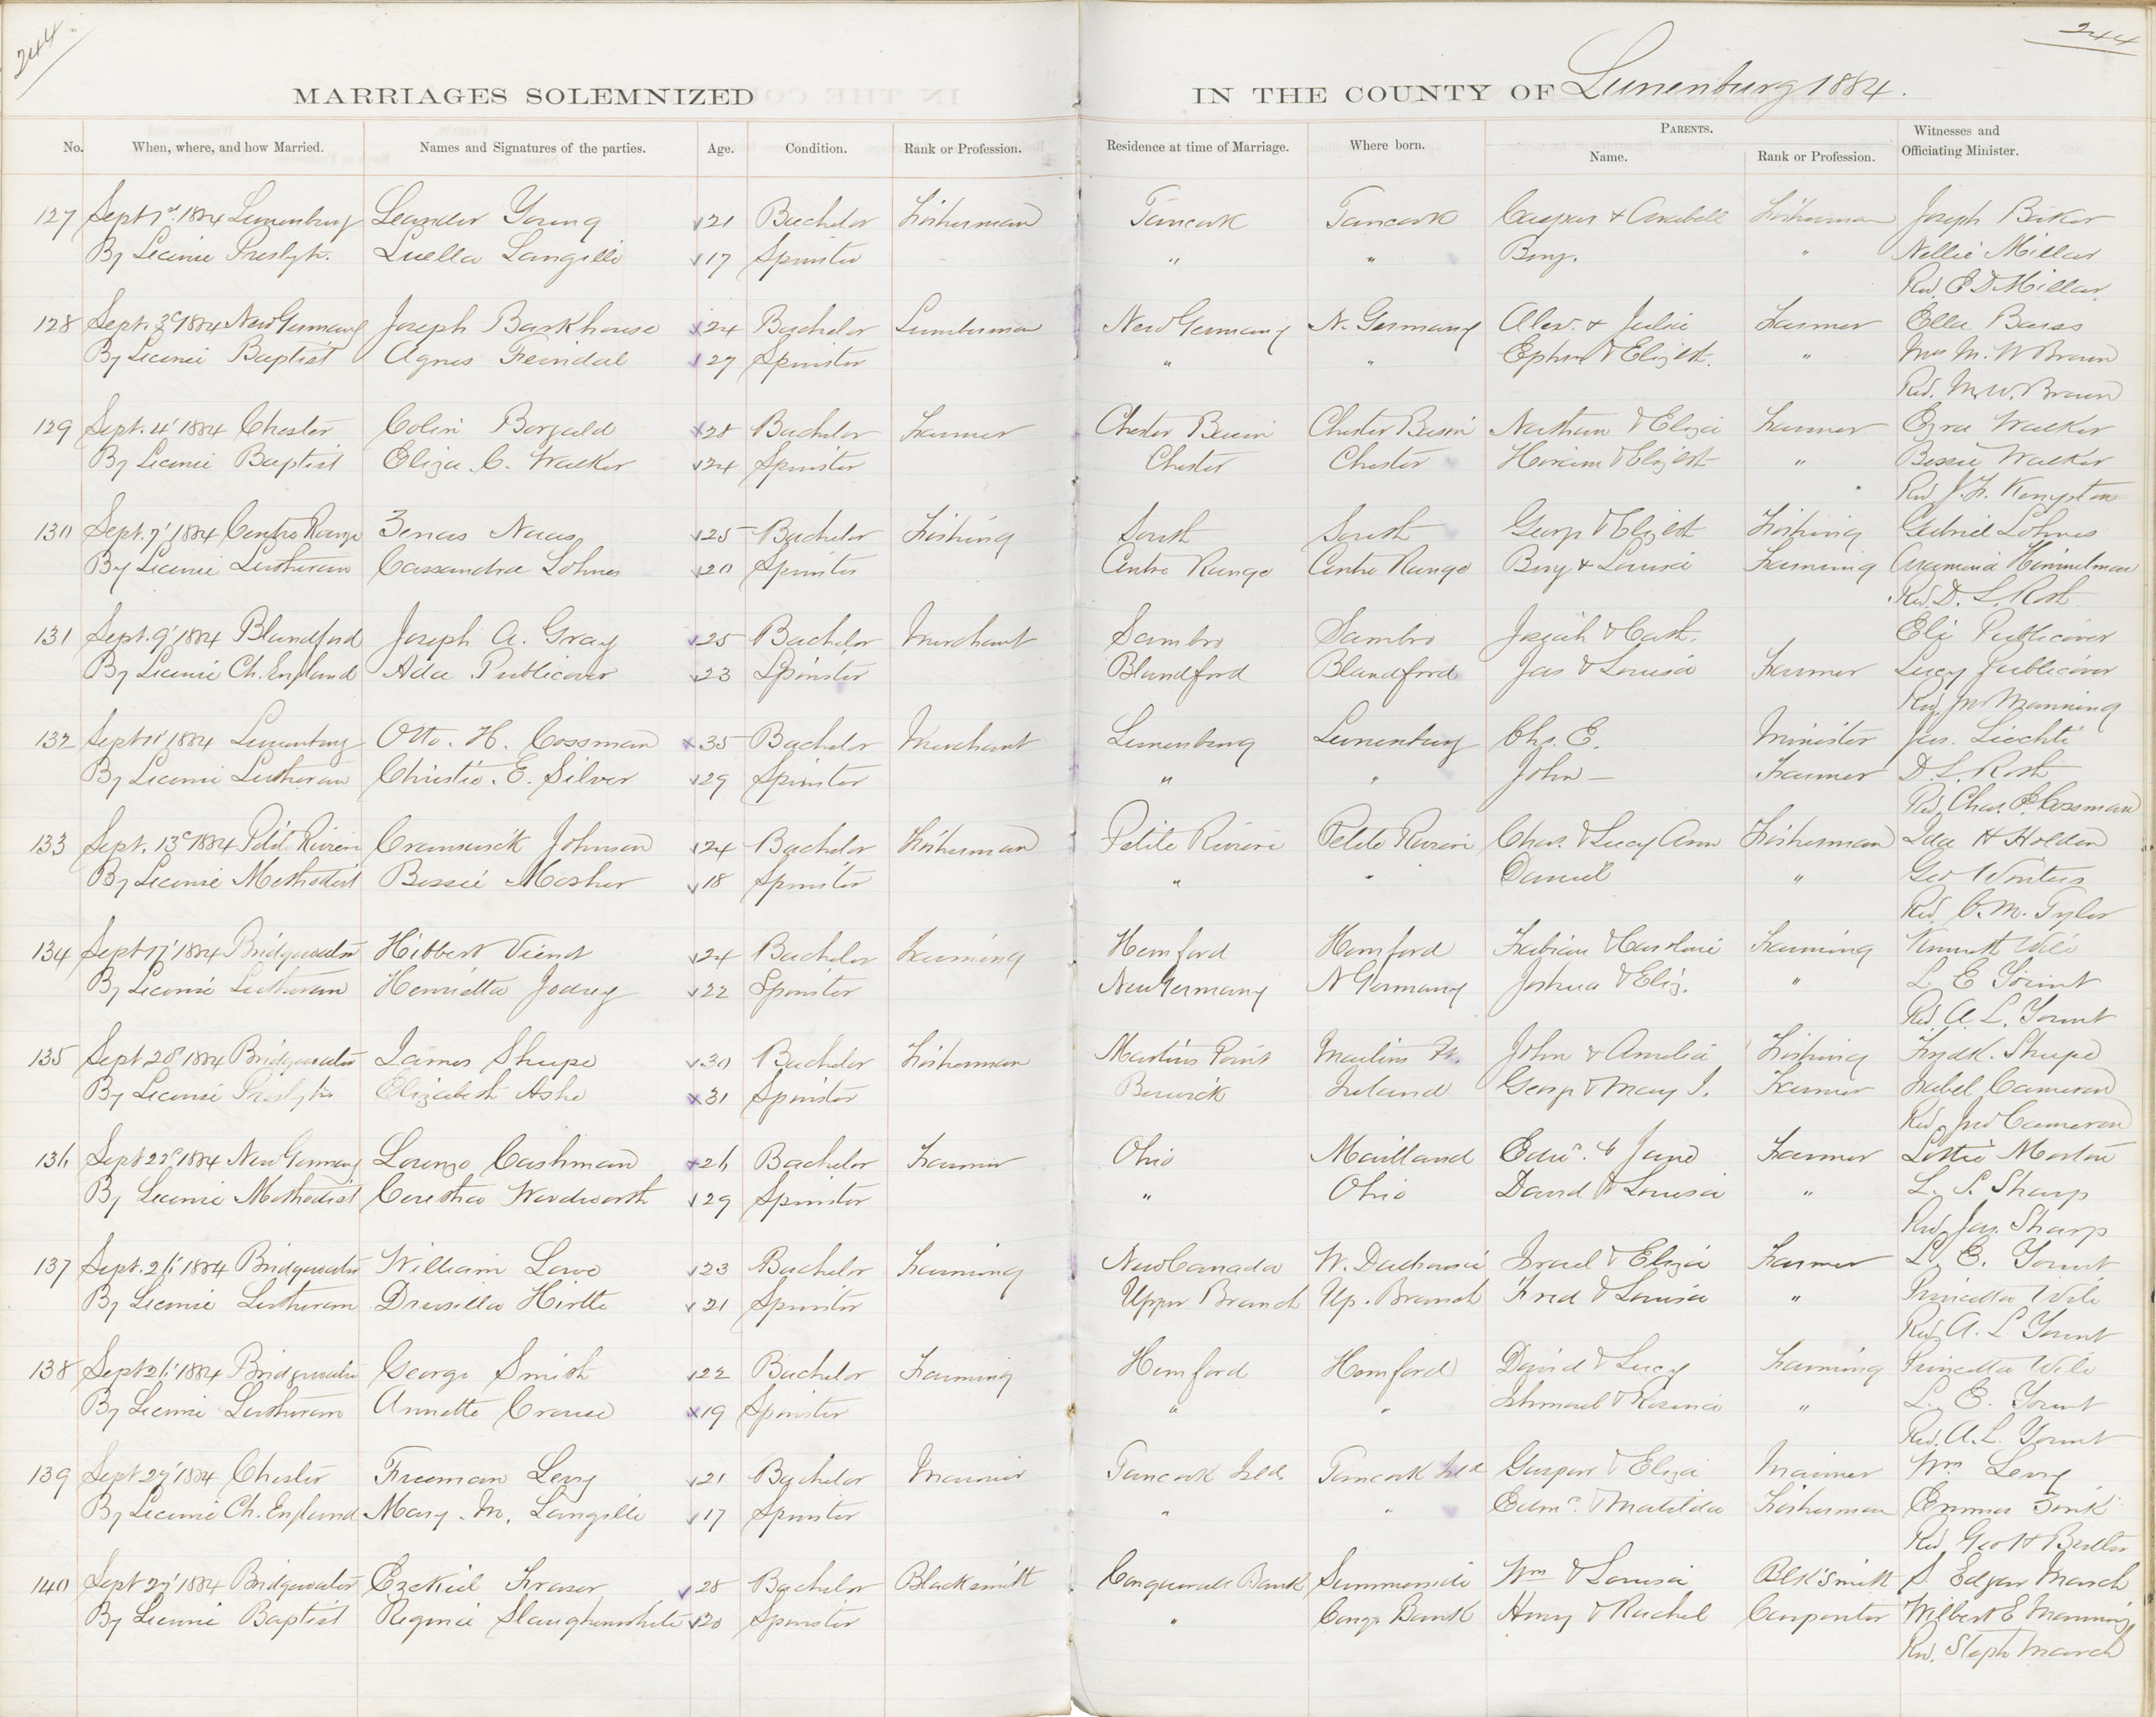 244
244
MARRIAGES SOLEMNIZED IN THE COUNTY OF Lunenburg 1884.
No. When, where, and how Married. Names and Signatures of the parties. Age. Condition. Rank or Profession. Residence at time of Marriage. Where born. PARENTS. Name. Rank or Profession. Witnesses and Officiating Minister.
127 Sept 1st 1884 Lunenburg Leander Young 21 Bachelor Fisherman Tancook Tancook Casper & Anabell Fisherman Joseph Baker
By License Presbytn. Luella Langille 17 Spinster " " Benj. " Nellie Millar
Rev. E D Millar
128 Sept. 3d 1884 New Germany Joseph Barkhouse 24 Bachelor Lumberman New Germany N. Germany Alex. & Julia Farmer Ella Barss
By License Baptist Agnes Feindal 27 Spinster " " Ephm & Elizbth. " Mrs M. W Brown
Rev. M. W. Brown
129 Sept. 4' 1884 Chester Colin Borgald 28 Bachelor Farmer Chester Basin Chester Basin Nathan & Eliza Farmer Ezra Walker
By License Baptist Eliza C. Walker 24 Spinster Chester Chester Hiram & Elizbth " Bessie Walker
Rev J. F. Kempton
130 Sept. 7' 1884 Centre Range Zenas Naas 25 Bachelor Fishing South South George & Elizbth Fishing Gabriel Lohnes
By License Lutheran Cassandra Lohnes 20 Spinster Centre Range Centre Range Benj & Louisa Farming Araminia Himmelman
Rev D. L. Roth
131 Sept. 9' 1884 Blandford Joseph A. Gray 25 Bachelor Merchant Sambro Sambro Josiah & Cath. Eli Publicover
By License Ch. England Ada Publicover 23 Spinster Blandford Blandford Jas & Louisa Farmer Lucy Publicover
Rev. Jno Manning
132 Sept 11' 1884 Lunenburg Otto. H. Cossman 35 Bachelor Merchant Lunenburg Lunenburg Chs. E. Minister Jas. Liechti
By License Lutheran Christie. E. Silver 29 Spinster " " John — Farmer D. L. Roth
Rev. Chas. E Cossman
133 Sept. 13th 1884 Petit Riviere Johnson 24 Bachelor Fisherman Petite Riviere Petite Riviere Chas. & Lucy Ann Fisherman Ida H Holden
By License Methodist Bessie Mosher 18 Spinster " " Daniel " Geo Winters
Rev. C. M. Tyler
134 Sept 17' 1884 Bridgewater Hibbert Vienot 24 Bachelor Farming Hemford Hemford Fabian & Caroline Farming Kenneth Wile
By License Lutheran Henrietta Jodrey 22 Spinster New Germany N Germany Joshua & Eliz. " L. E Yount
Rev. A. L. Yount
135 Sept 20th 1884 Bridgewater James Shupe 30 Bachelor Fisherman Martins Point Martins Pt. John & Amelia Fishing Fredk. Shupe
By License Presbytn Elizabeth Ashe 31 Spinster Berwick Ireland George & Mary J. Farmer Isabel Cameron
Rev. Jno Cameron
136 Sept 22d 1884 New Germany Lorenzo Cashman 26 Bachelor Farmer Ohio Maitland Edwd. & Jane Farmer Lottie Morton
By License Methodist Wordworth 29 Spinster " Ohio David & Louisa " L. S. Sharp
Rev. Jas. Sharp
137 Sept. 26' 1884 Bridgewater William Lowe 23 Bachelor Farming New Canada W. Dalhousie Israel & Eliza Farmer L. E. Yount
By License Lutheran Drusilla Hirtle 21 Spinster Upper Branch Up. Branch Fred & Louisa " Princetta Wile
Rev. A. L Yount
138 Sept 26' 1884 Bridgewater George Smith 22 Bachelor Farming Hemford Hemford David & Lucy Farming Princetta Wile
By License Lutheran Annette Crouse 19 Spinster " " Ishmael & Rosina " L. E. Yount
Rev. A. L. Yount
139 Sept 27' 1884 Chester Freeman Levy 21 Bachelor Mariner Tancook Isld. Tancook Isld Gasper & Eliza Mariner Wm Levy
By License Ch. England Mary. M. Langille 17 Spinster " " Edmd. & Matilda Fisherman Emma Zink
Rev Geo H Butler
140 Sept 27' 1884 Bridgewater Ezekiel Fraser 28 Bachelor Blacksmith Conquerall Bank Summerside Wm & Louisa Blk'smith S. Edgar March
By License Baptist Regina Slaughenwhite 20 Spinster " Conq. Bank Henry & Rachel Carpenter Wilbert E Manning
Rev. Steph March